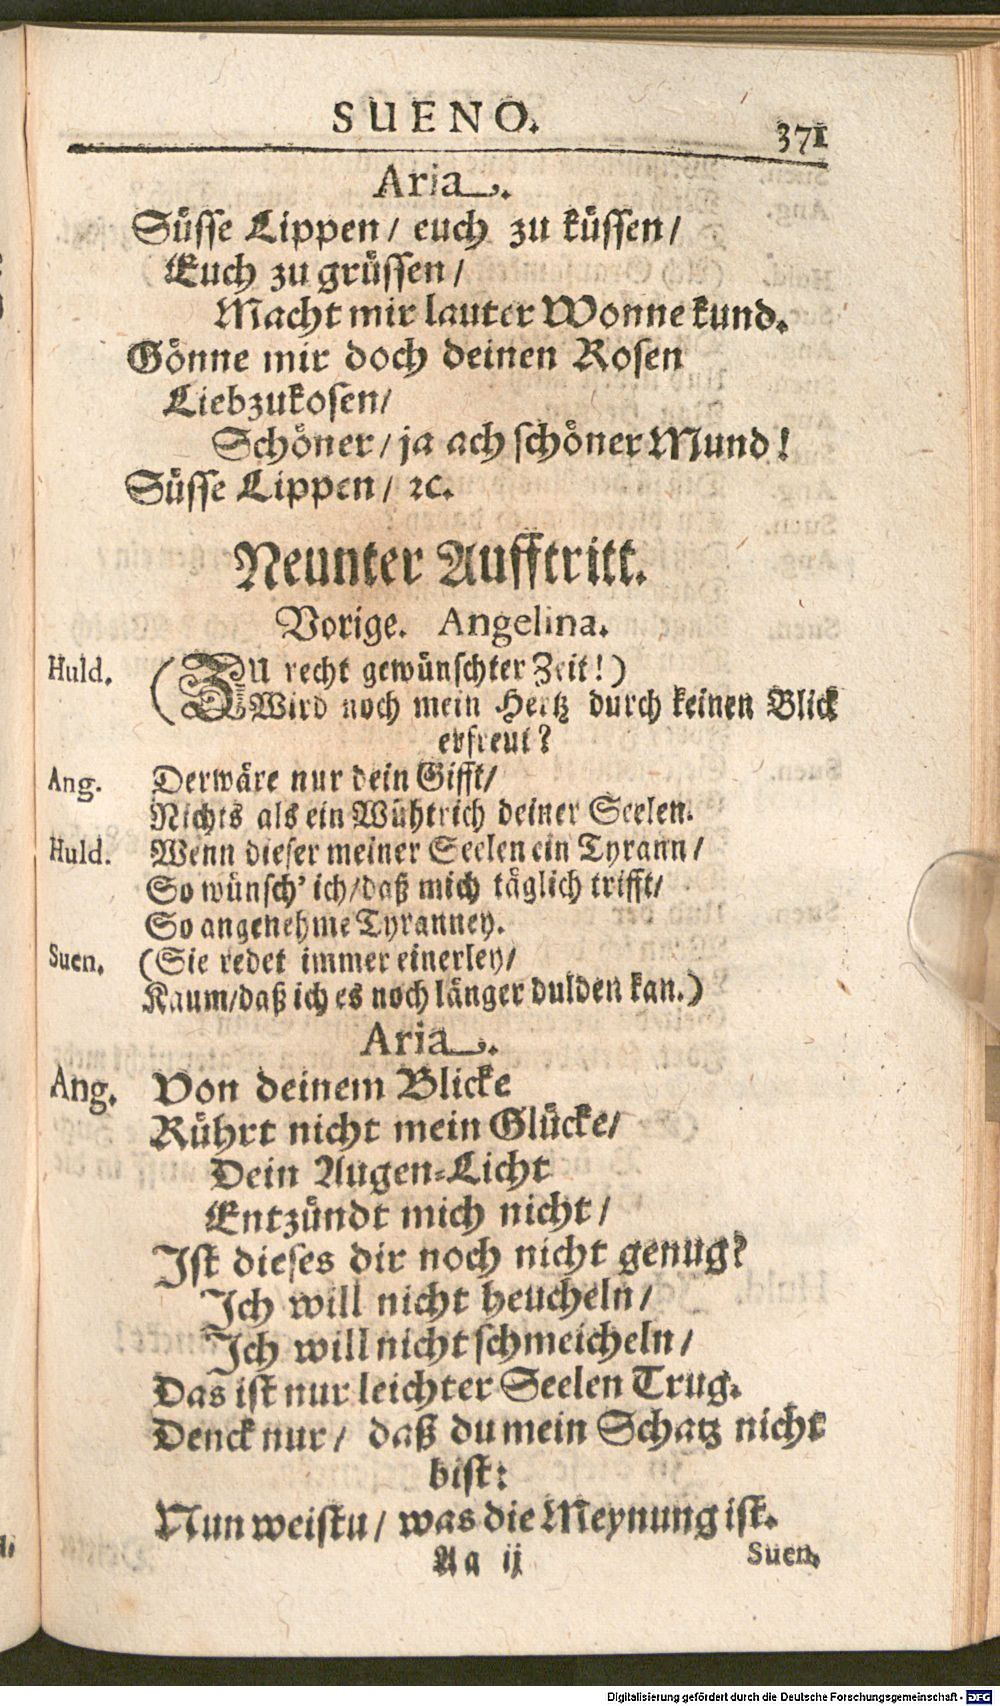 SUENO. 371
Aria.
Süsse Lippen/ euch zu küssen/
Euch zu grüssen/
Macht mir lauter Wonne kund.
Gönne mir doch deinen Rosen
Liebzukosen/
Schöner/ ja ach schöner Mund!
Süsse Lippen/ ꝛc.
Neunter Aufftritt.
Vorige. Angelina.
Huld. (ZU recht gewünschter Zeit!)
(Wird noch mein Hertz durch keinen Blick
erfreut?
Ang. Der wäre nur dein Gifft/
Nichts als ein Wühtrich deiner Seelen.
Huld. Wenn dieser meiner Seelen ein Tyrann/
So wünsch' ich/ daß mich täglich trifft/
So angenehme Tyranney.
Suen. (Sie redet immer einerley/
Kaum/ daß ich es noch länger dulden kan.)
Aria.
Ang. Von deinem Blicke
Rührt nicht mein Glücke/
Dein Augen-Licht
Entzündt mich nicht/
Ist dieses dir noch nicht genug?
Ich will nicht heucheln/
Ich will nicht schmeicheln/
Das ist nur leichter Seelen Trug.
Denck nur/ daß du mein Schatz nicht
bist:
Nun weistu/ was die Meynung ist.
Aa ij Suen.
Digitalisierung gefördert durch die Deutsche Forschungsgemeinschaft - DFG